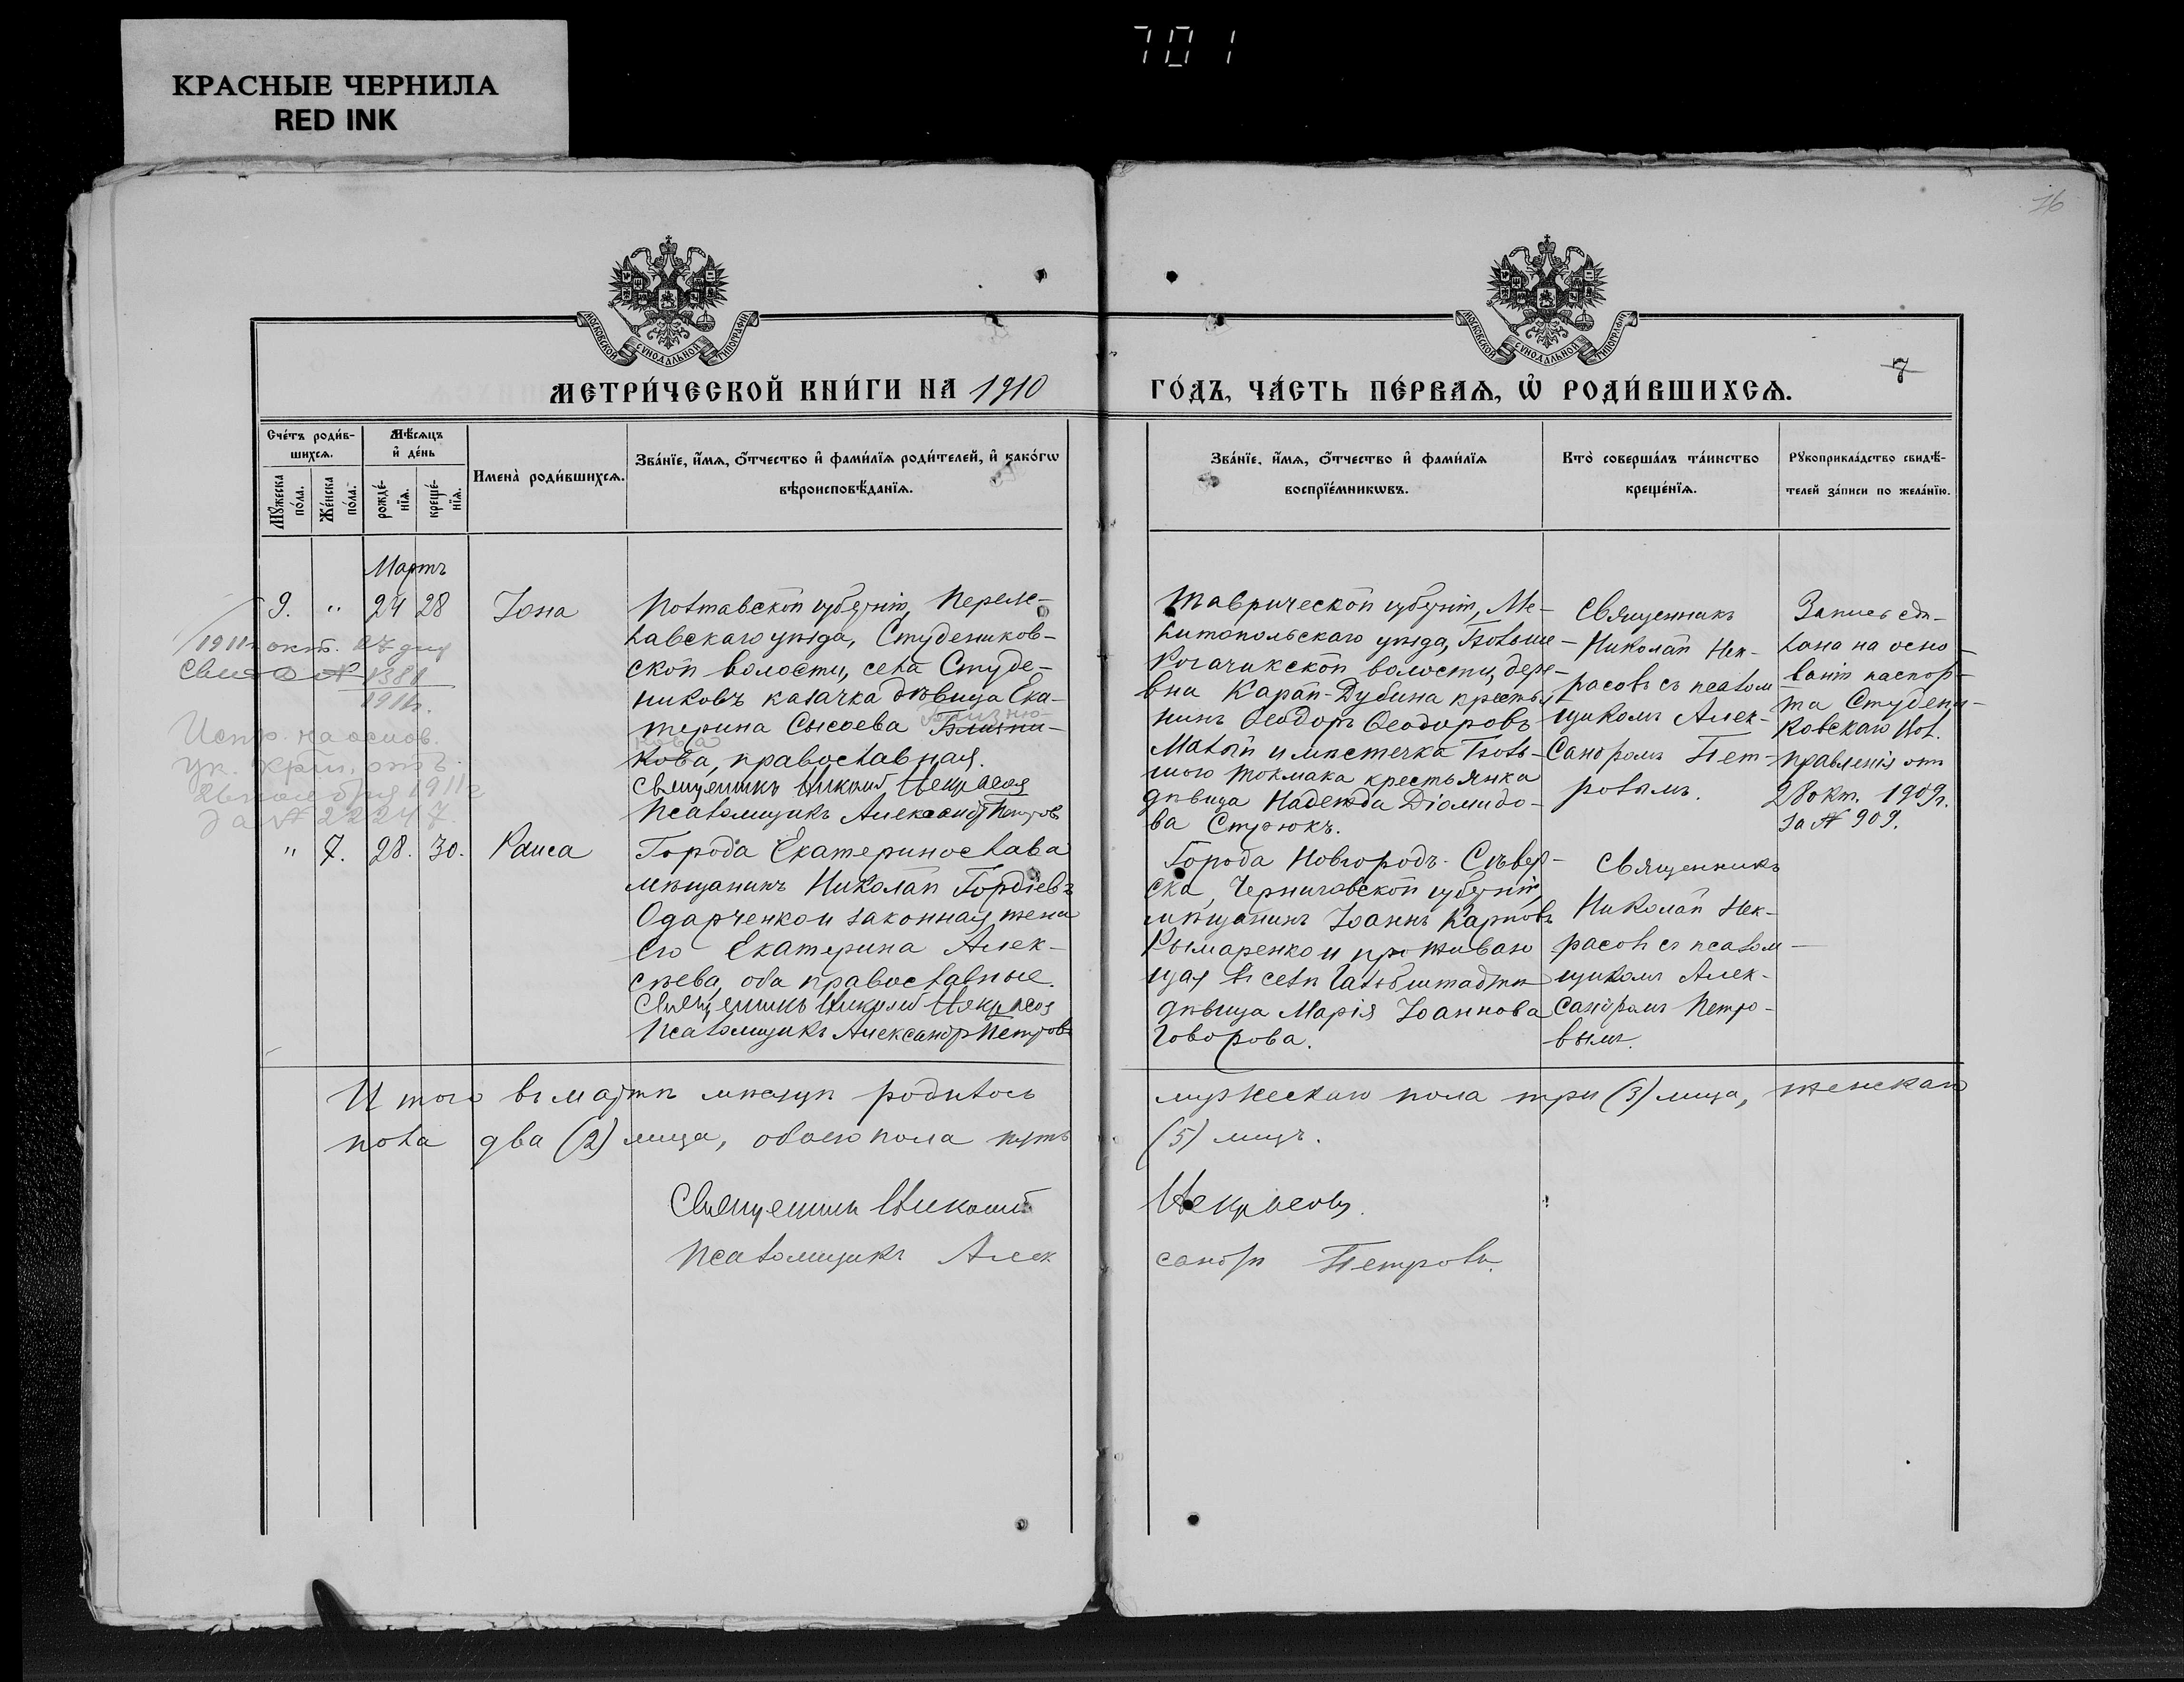 701
КРАСНЫЕ ЧЕРНИЛА
RED INK
76
МОСКОВСКОЙ СѴНОДАЛЬНОЙ ТИПОГРАФІИ
МОСКОВСКОЙ СѴНОДАЛЬНОЙ ТИПОГРАФІИ
7
МЕТРИ́ЧЕСКОЙ КНИ́ГИ НА 1910
ГО́ДЪ, ЧА́СТЬ ПЕ́РВАѦ, Ѡ҆ РОДИ́ВШИХСѦ.
Счéтъ роди́в-
шихсѧ.
Мꙋ́жеска
по́ла.
Же́нска
по́ла.
Мѣ́сѧцъ
и҆ де́нь
рожде́-
нїѧ.
креще́-
нїѧ.
Имена̀ роди́вшихсѧ.
Зва́нїе, и҆́мѧ, ѻ҆́тчество и҆ фами́лїѧ роди́телей, и҆ како́гѡ
вѣроисповѣ́данїѧ.
Зва́нїе, и҆́мѧ, ѻ҆́тчество и҆ фами́лїѧ
воспрїе́мникѡвъ.
Кто̀ соверша́лъ та́инство
креще́нїѧ.
Рꙋкоприкла́дство свидѣ́-
телей за́писи по жела́нїю.
Мартъ
9. " 24 28
Іона
Полтавской губерніи, Переяс-
лавскаго уѣзда, Студеников-
ской волости, села Студе-
никовъ казачка дѣвица Ека-
терина Сысоева Близни-
кова, православная.
Священникъ Николай Некрасов
Псаломщикъ Александр Петров
1911 г. окт. 27 дня
Свид. № 1380
1911 г.
Испр. на основ.
ук. 
26 ноября 1911 г
за № 22247.
Таврической губерніи, Ме-
литопольскаго уѣзда, Больше-
Рогачикской волости, дере-
вни Карай-Дубина крестья
нинъ Ѳеодоръ Ѳеодоровъ
Малый и мѣстечка Боль-
шого Токмака крестьянка
дѣвица Надежда Діомидо-
ва Стрюкъ.
Священникъ
Николай Нек-
расовъ съ псалом
щикомъ Алек-
сандромъ Пет-
ровымъ.
Запись сдѣ-
лана на осно-
ваніи паспор-
та Студени-
ковскаго Вол.
правленія отъ
28 окт. 1909 г.
за № 909.
" 7. 28. 30.
Раиса
Города Екатеринослава
мѣщанинъ Николай Гордіевъ
Одарченко и законная жена
его Екатерина Алек-
сѣева, оба православные.
Священникъ Николай Некрасов
Псаломщикъ Александр Петровъ
Города Новгородъ-Сѣвер-
ска, Черниговской губерніи,
мѣщанинъ Іоаннъ Карповъ
Рымаренко и проживаю
щая въ селѣ Гальбштадтѣ
дѣвица Марія Іоаннова
Говорова.
Священникъ
Николай Нек-
расовъ съ псалом-
щикомъ Алек-
сандромъ Петро-
вымъ.
Итого въ мартѣ мѣсяцѣ родилось
мужескаго пола три (3) лица, женскаго
пола два (2) лица, обоего пола пять
(5) лицъ.
Священникъ Николай
Некрасовъ.
Псаломщикъ Алек
сандръ Петровъ.